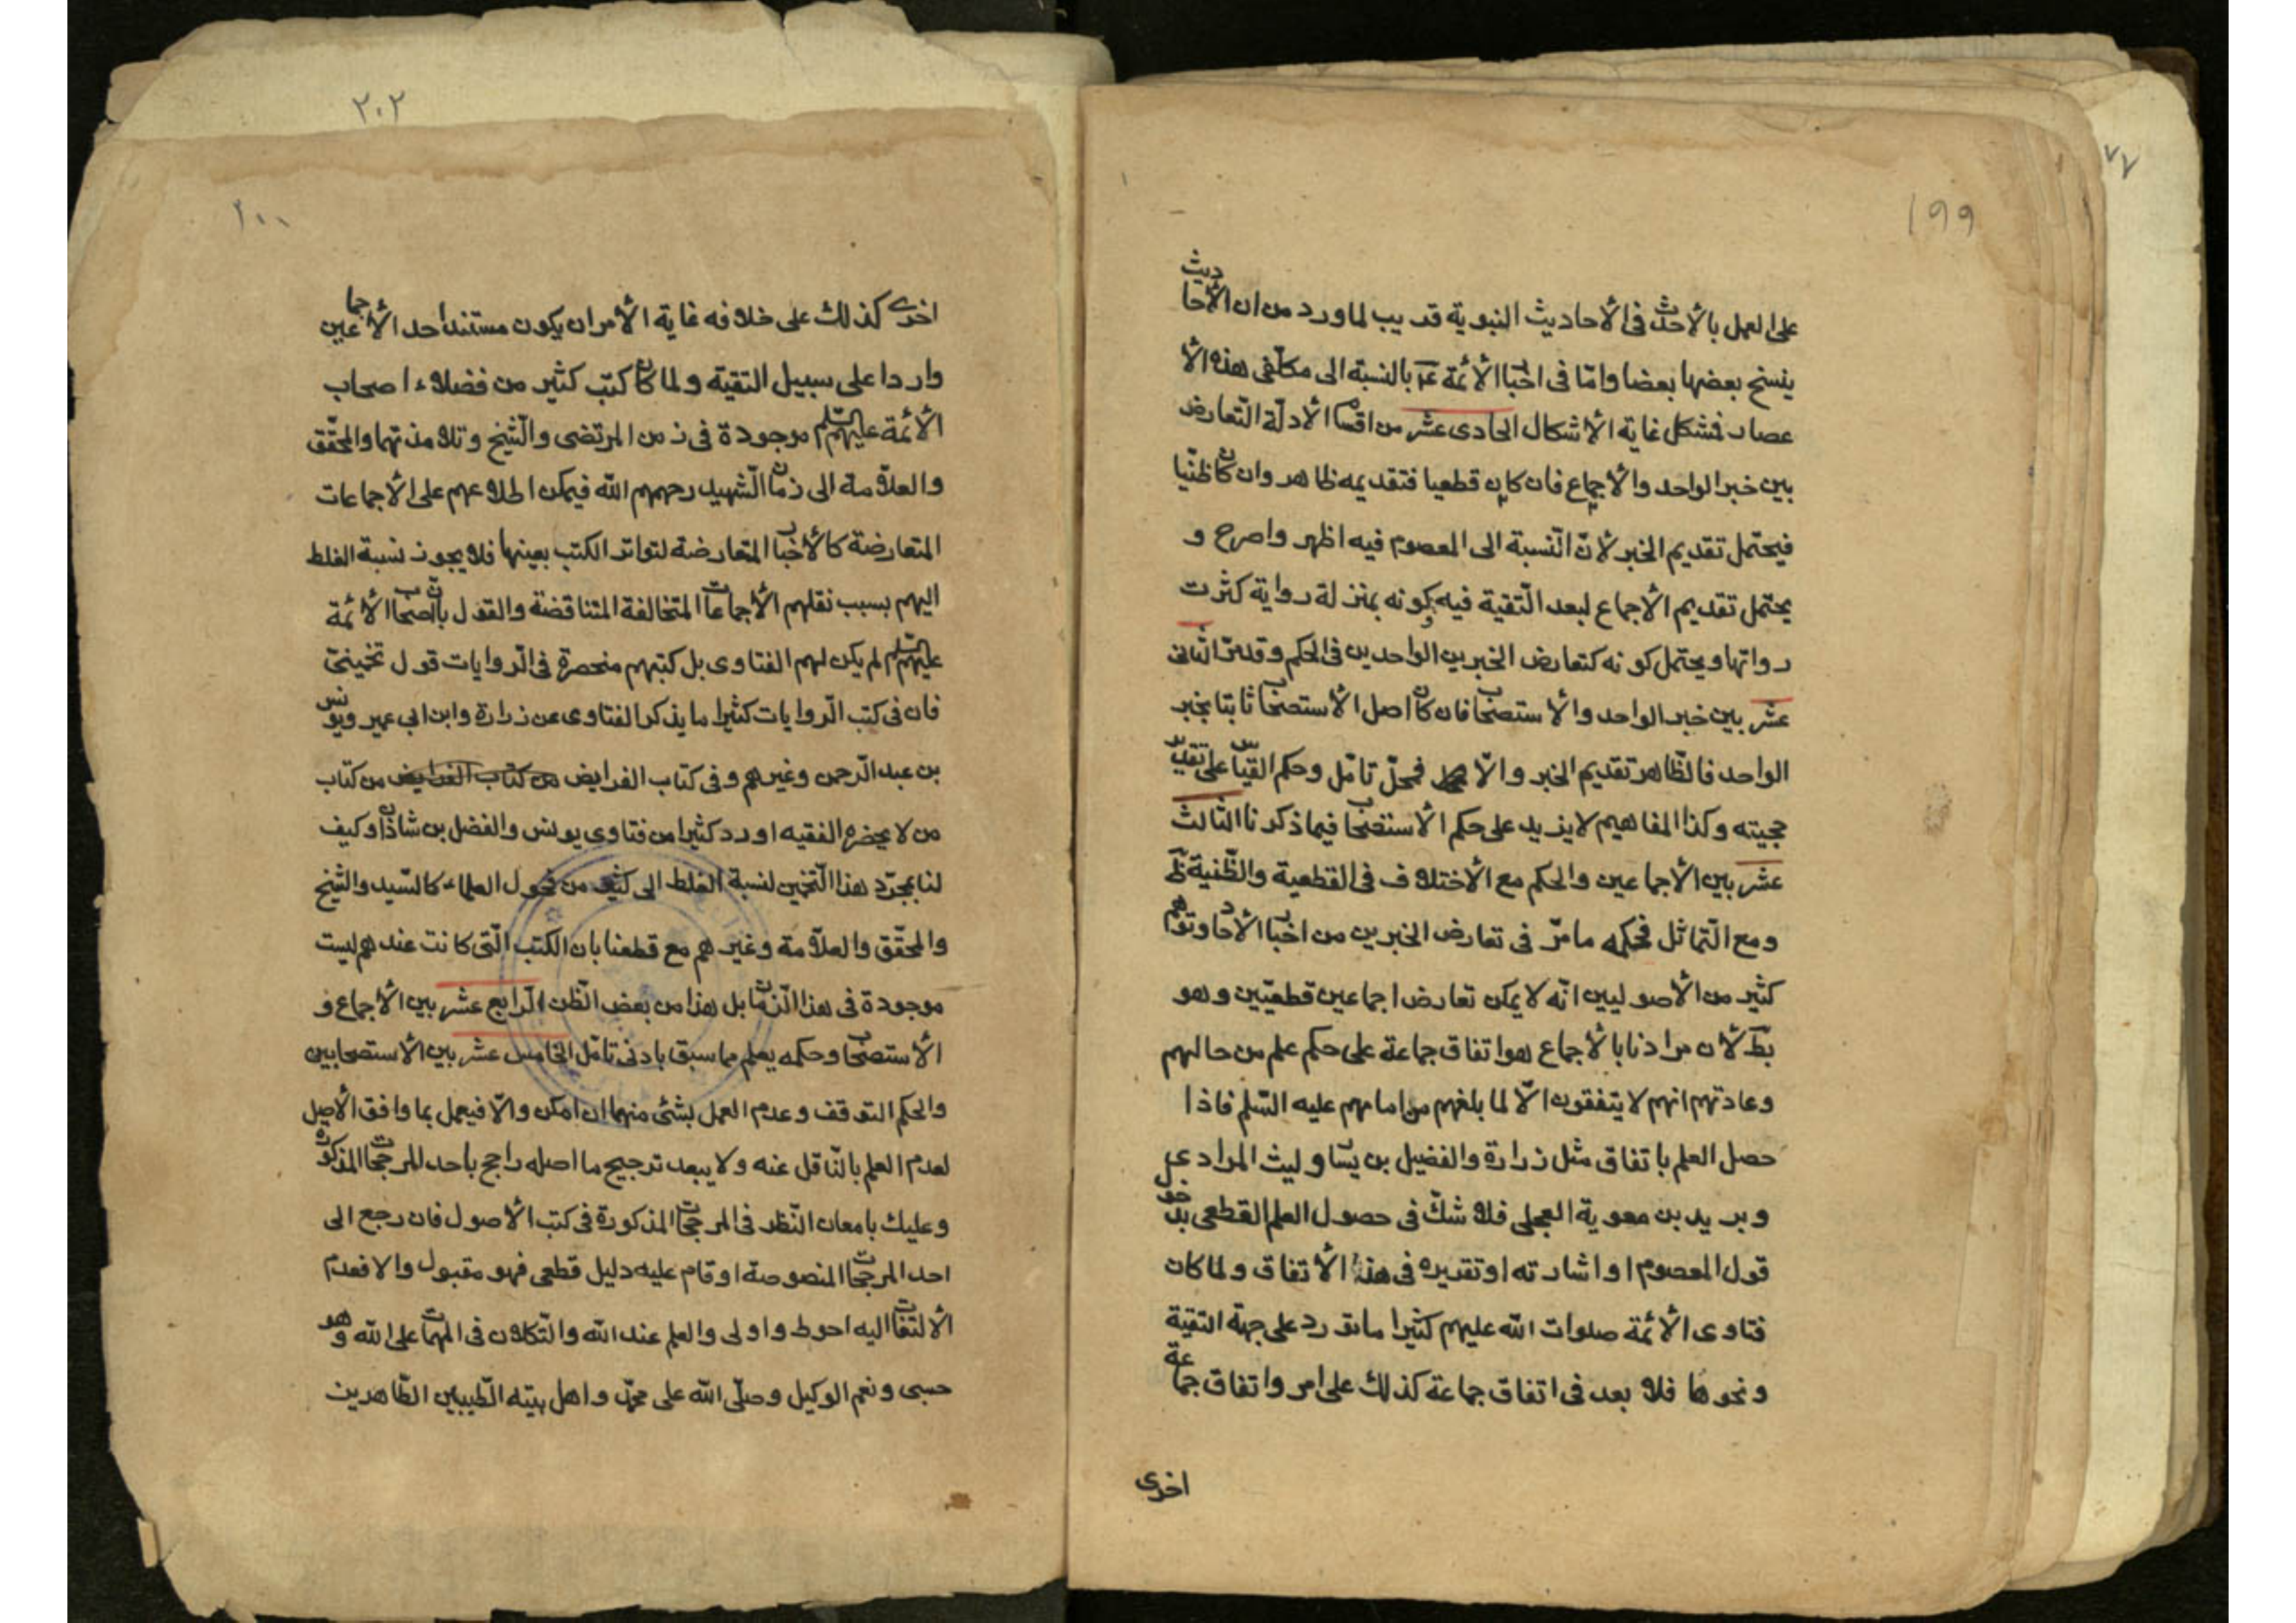 ١٩٩
على العمل بالأحدث فى الأحاديث النبوية قريب لما ورد من ان الأحاديث
ينسخ بعضها بعضا وامّا فى اخبا الأئمة عم بالنسبة الى مكلفى هذه الأ
عصار فمشكل غاية الأشكال الحادى عشر من اقسا الأدلّة التّعارض
بين خبر الواحد والأجماع فان كان قطعيا فتقديمه ظاهر وان كان ظنّيا
فيحتمل تقديم الخبر لانّ النّسبة الى المعصوم فيه اظهر واصرح و
يحتمل تقديم الأجماع لبعد التّقية فيه وكونه بمنزلة رواية كثرت
رواتها ويحتمل كونه كتعارض الخبرين الواحدين فى الحكم وقد مرّ الثّانى
عشر بين خبر الواحد والأستصحاب فان كان اصل الأستصحاب ثابتا بخبر
الواحد فالظّاهر تقديم الخبر والّا فمحلّ تامّل وحكم القياس على تقدير
حجيته وكذا المفاهيم لا يزيد على حكم الأستصحاب فيما ذكرنا الثّالث
عشر بين الأجماعين والحكم مع الأختلاف فى القطعية والظّنية ظ
ومع التّماثل فحكمه ما مرّ فى تعارض الخبرين من اخبا الأحاد وتوهّم
كثير من الأصوليين انّه لا يمكن تعارض اجماعين قطعيّين وهو
بط لأن مرادنا بالأجماع هو اتفاق جماعة على حكم علم من حالهم
وعادتهم انهم لا يتفقون الّا لما بلغهم من امامهم عليه السّلم فاذا
حصل العلم باتفاق مثل زرارة والفضيل بن يسا وليث المرادى
وبريد بن معوية العجلى فلا شكّ فى حصول العلم القطعى بدخو
قول المعصوم او اشارته او تقريره فى هذا الأتفاق ولما كان
فتاوى الأئمة صلوات الله عليهم كثيرا ما تورد على جهة التقية
ونحوها فلا بعد فى اتفاق جماعة كذلك على امر واتفاق جماعة
اخرى
٢٠٢
٢٠٠
اخرى كذلك على خلافه غاية الأمر ان يكون مستند احد الأجماعين
واردا على سبيل التقية ولما كان كتب كثير من فضلاء اصحاب
الأئمة عليهم السّلم موجودة فى زمن المرتضى والشّيخ وتلامذتهما والمحقّق
والعلّامة الى زمان الشّهيد رحمهم الله فيمكن اطلاعهم على الأجماعات
المتعارضة كالأخبا المتعارضة لتواتر الكتب بعينها فلا يجوز نسبة الغلط
اليهم بسبب نقلهم الأجماعات المتخالفة المتناقضة والقول بانّ اصحاب الأئمة
عليهم السّلم لم يكن لهم الفتاوى بل كتبهم منحصرة فى الرّوايات قول تخمينىّ
فان فى كتب الرّوايات كثيرا ما يذكر الفتاوى عن زرارة وابن ابى عمير ويونس
بن عبد الرّحمن وغيرهم وفى كتاب الفرايض من كتاب الفرايض من كتاب
من لا يحضره الفقيه اورد كثيرا من فتاوى يونس والفضل بن شاذان وكيف
لنا بمجرّد هذا التّخمين لنسبة الغلط الى كثير من فحول العلماء كالسّيد والشّيخ
والمحقّق والعلّامة وغيرهم مع قطعنا بان الكتب الّتى كانت عندهم ليست
موجودة فى هذا الزّمان بل هذا من بعض الظّن الرّابع عشر بين الأجماع و
الأستصحاب وحكمه يعلم مما سبق بادنى تامّل الخامس عشر بين الأستصحابين
والحكم التوقف وعدم العمل بشئ منهما ان امكن والّا فيعمل بما وافق الأصل
لعدم العلم بالنّاقل عنه ولا يبعد ترجيح ما اصله راجح باحد المرجحات المذكورة
وعليك بامعان النّظر فى المرجحات المذكورة فى كتب الأصول فان رجع الى
احد المرجحات المنصوصة او قام عليه دليل قطعى فهو مقبول والا فعدم
الألتفات اليه احوط واولى والعلم عند الله والتّكلان فى المهمات على الله وهو
حسبى ونعم الوكيل وصلّى الله على محمّد واهل بيته الطّيبين الطّاهرين